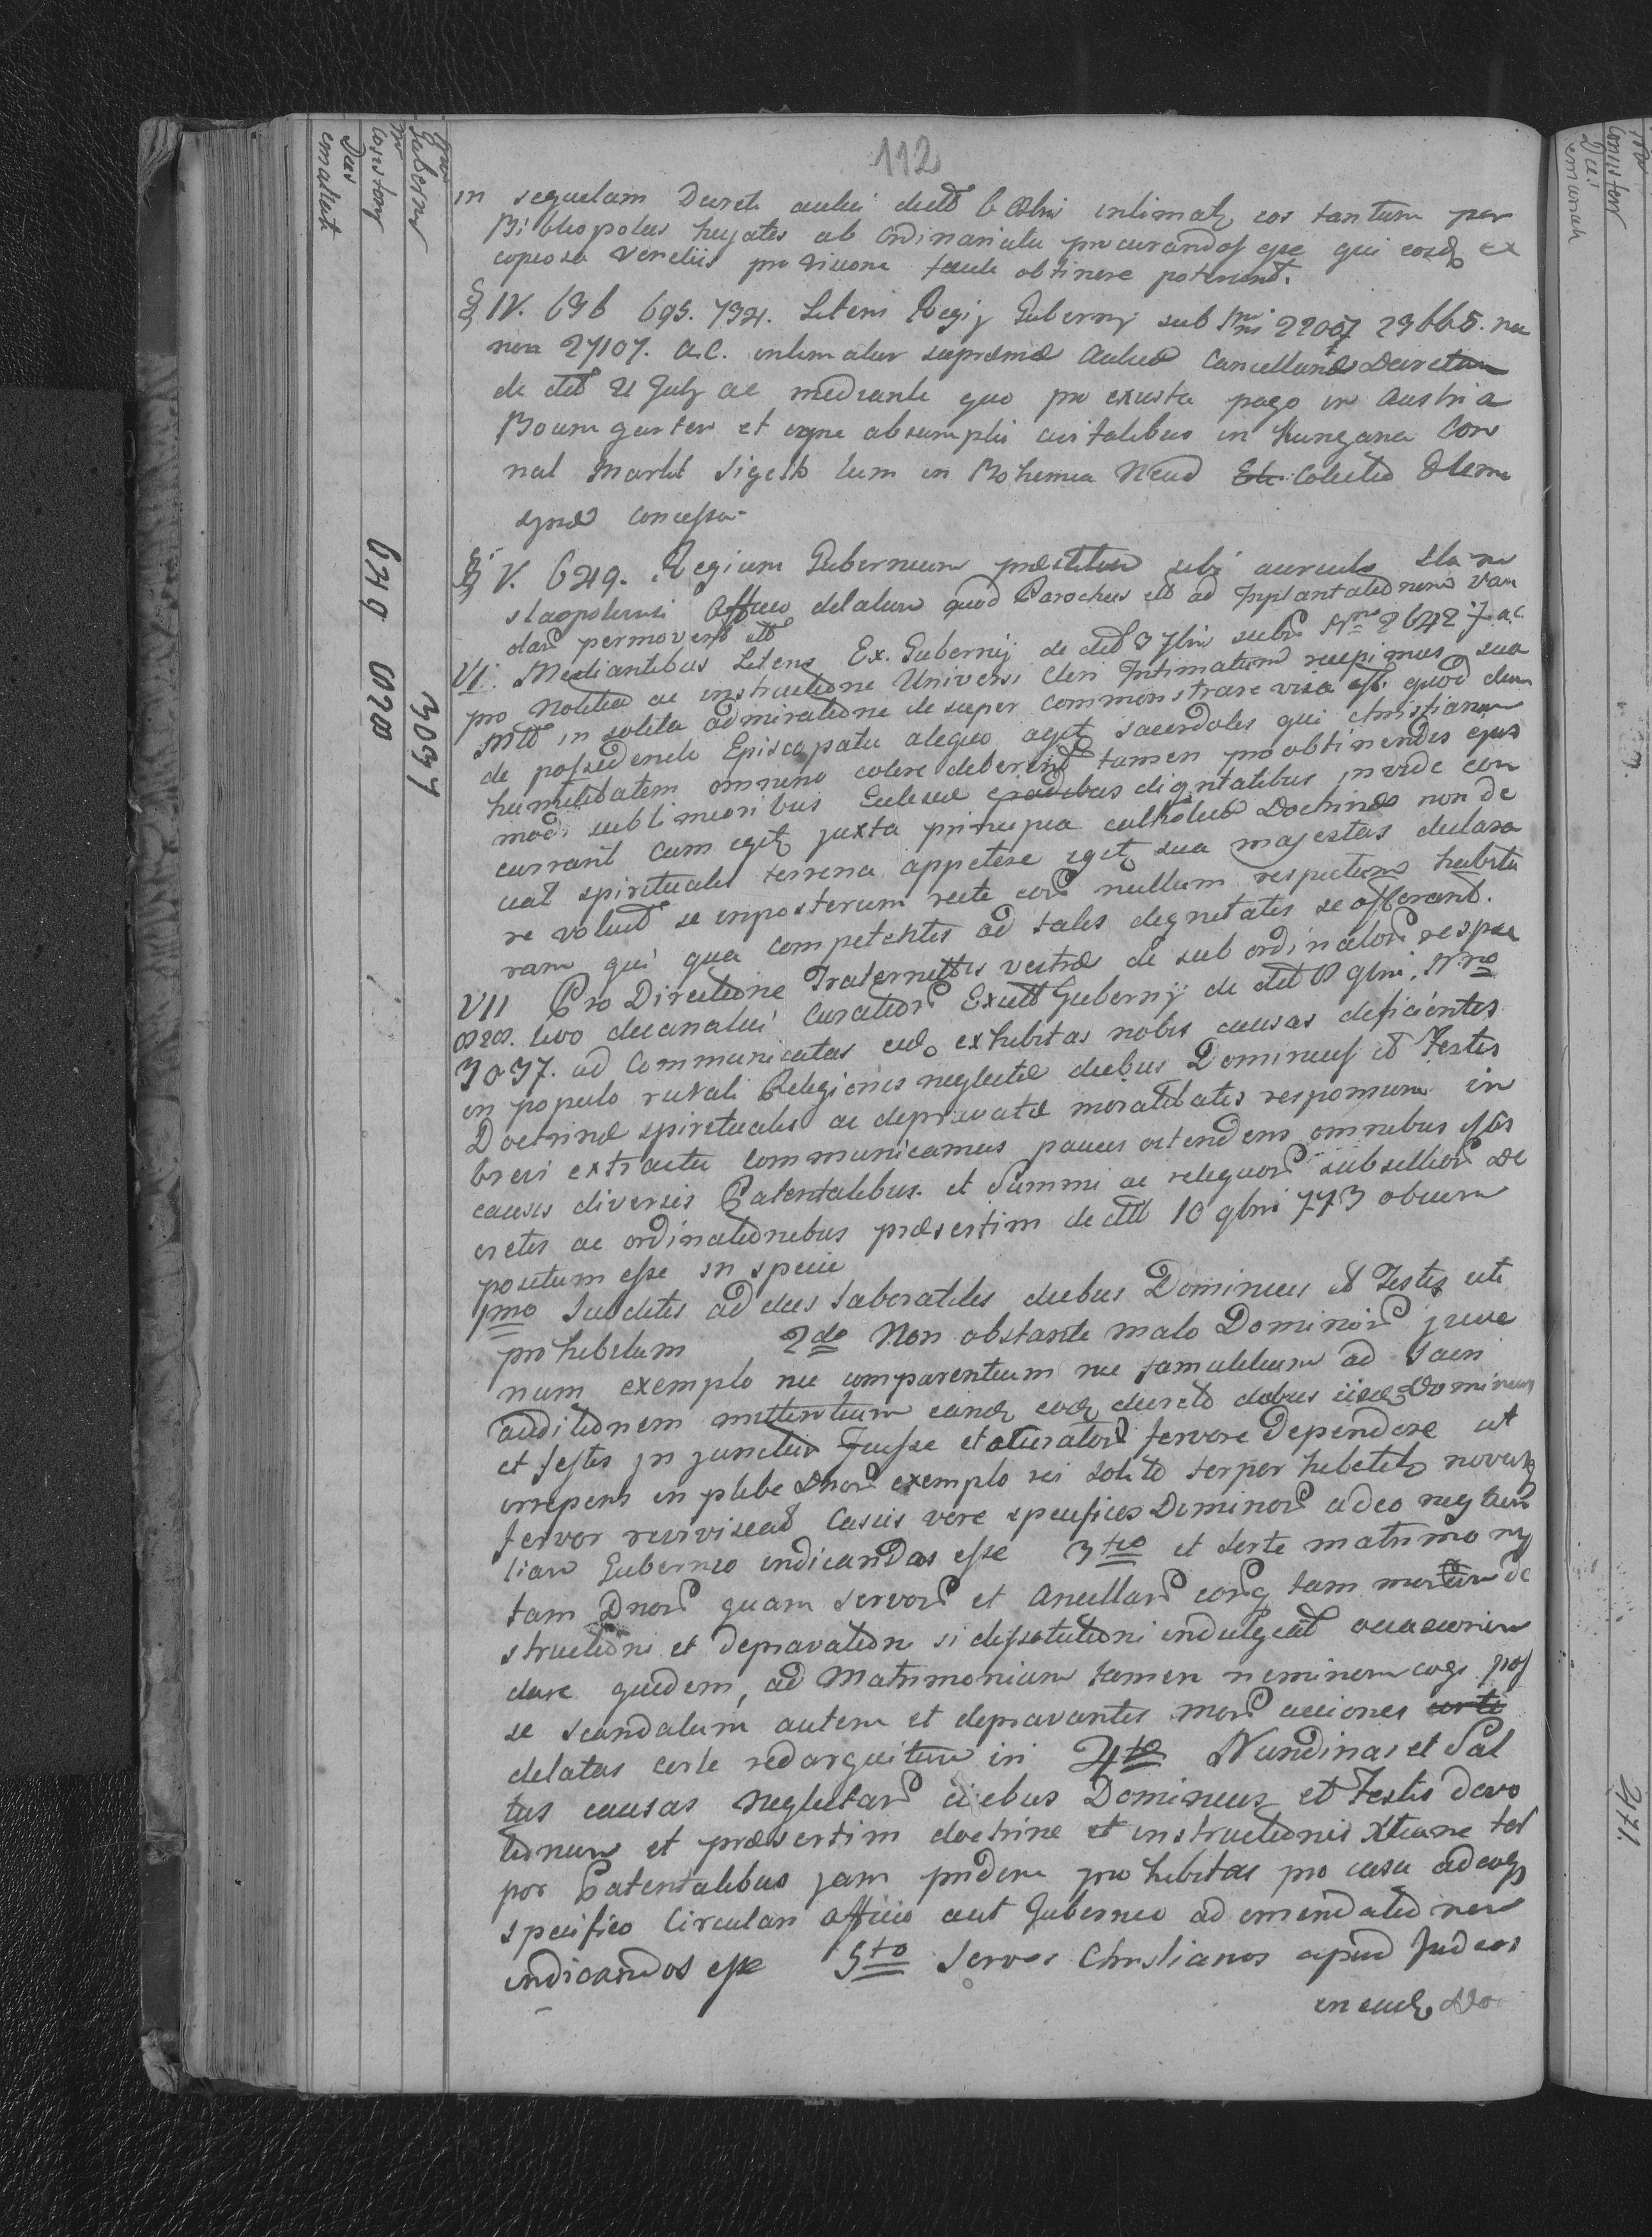 112
in sequelam Decreti aulici dedt 6 8bris intimatz eos tantum per
Bibliopolas hujates ab Ordinariatu procurandos esse qui eosdz ex
copiosa Venetiis provisione facile obtinere poterunt.
§ IV. 696 695. 734. Literis Regij Gubernij sub Nris 22057 29665. nec
non 27107. a.c. intimatur supremae Aulicae Cancellariae Decretum
de dtt 21 July ac mediante quo pro exusta pago in Austria
Boumgarten et igne absumptis civitatibus in Hungaria Cor
nal Markt Sigeth tum in Bohemia Neud Collectio Elemo
synae concessa.
§ V. 649. Regium Gubernium praestitum sibi a circulo Sta ni
slaopoliensi Officio delatum quod Parochus ad Inplantationem
permovens
VI. Mediantibus Literis Ex. Gubernij de dtt 3 7bris sub Nro 26427 a.c.
pro Notitia ac instructione Universi Cleri Intimatum recepimus, sua
Mtt in solita admiratione de super commonstrare visa est quod dum
de possidendo Episcopatu aliquo agitz sacerdotes qui christianam
humilitatem omnino colere deberent tamen pro obtinendis ejus
modi sublimioribus Ecclesiae dignitatibus invide con
currant cum igitz juxta principia catholicae Doctrinae non de
ceat spirituales terrena appetere igitz sua majestas declara
re voluit se inposterum recte eor nullum respectum habitu
ram qui qua competentes ad tales dignitates se offerant.
VII Pro Directione Fraternittis vestrae de sub ordinator respec
828. tivo decanatui Curator Excelt Gubernij de dtt 8 9bris. Nro
3037. ad Communicatas exhibitas nobis causas deficientes
in populo rurali Religionis neglectae diebus Dominicis et Festis
Doctrinae spiritualis ac depravatae moralitatis responsum in
brevi extractu communicamus paucis ostendens omnibus istis
causis diversis Patentalibus et Summi ac reliquor subsellior De
cretis ac ordinationibus praesertim de dtt 10 9bris 773 obviam
positum esse in specie
1mo Subditis ad dies laboratiles diebus Dominicis et Festis uti
prohibitum 2do Non obstante malo Dominor juve
num exemplo nec comparentium nec famulitium ad Sacri
auditionem mittentium eandz eodz decreto diebus iisdz Dominicis
et festis injunctum fuisse et a Curator fervore dependere ut
irrepens in plebe Dnor exemplo rei solito terper hebetatz novusqz
fervor reviviscat Casus vero specificos Dominor adeo negligen
tiam Gubernio indicandos esse 3tio et certe matrimonij
tam Dnor quam servor et Ancillar eorqz tam morum de
structioni et depravationi si dissolutioni indulgeat occasionem
dare quidem, ad Matrimonium tamen neminem cogi pos
se scandalum autem et depravantes mor acciones
delatas certe redarguitum iri 4to Nundinas et Sal
tus causas neglectar diebus Dominicis et Festis devo
tionum et praesertim doctrine et instructionis Xtiane tot
por Patentalibus jam pridem prohibitas pro casu adeoqz
specifico Circulari officio aut Gubernio ad emendationem
indicandos esse 5to Servos Christianos apud Judeos
in eadz Do
Gubernij
Consistory
Dies
emanavit
649 828
3037
Consistory
Dies
emanavit